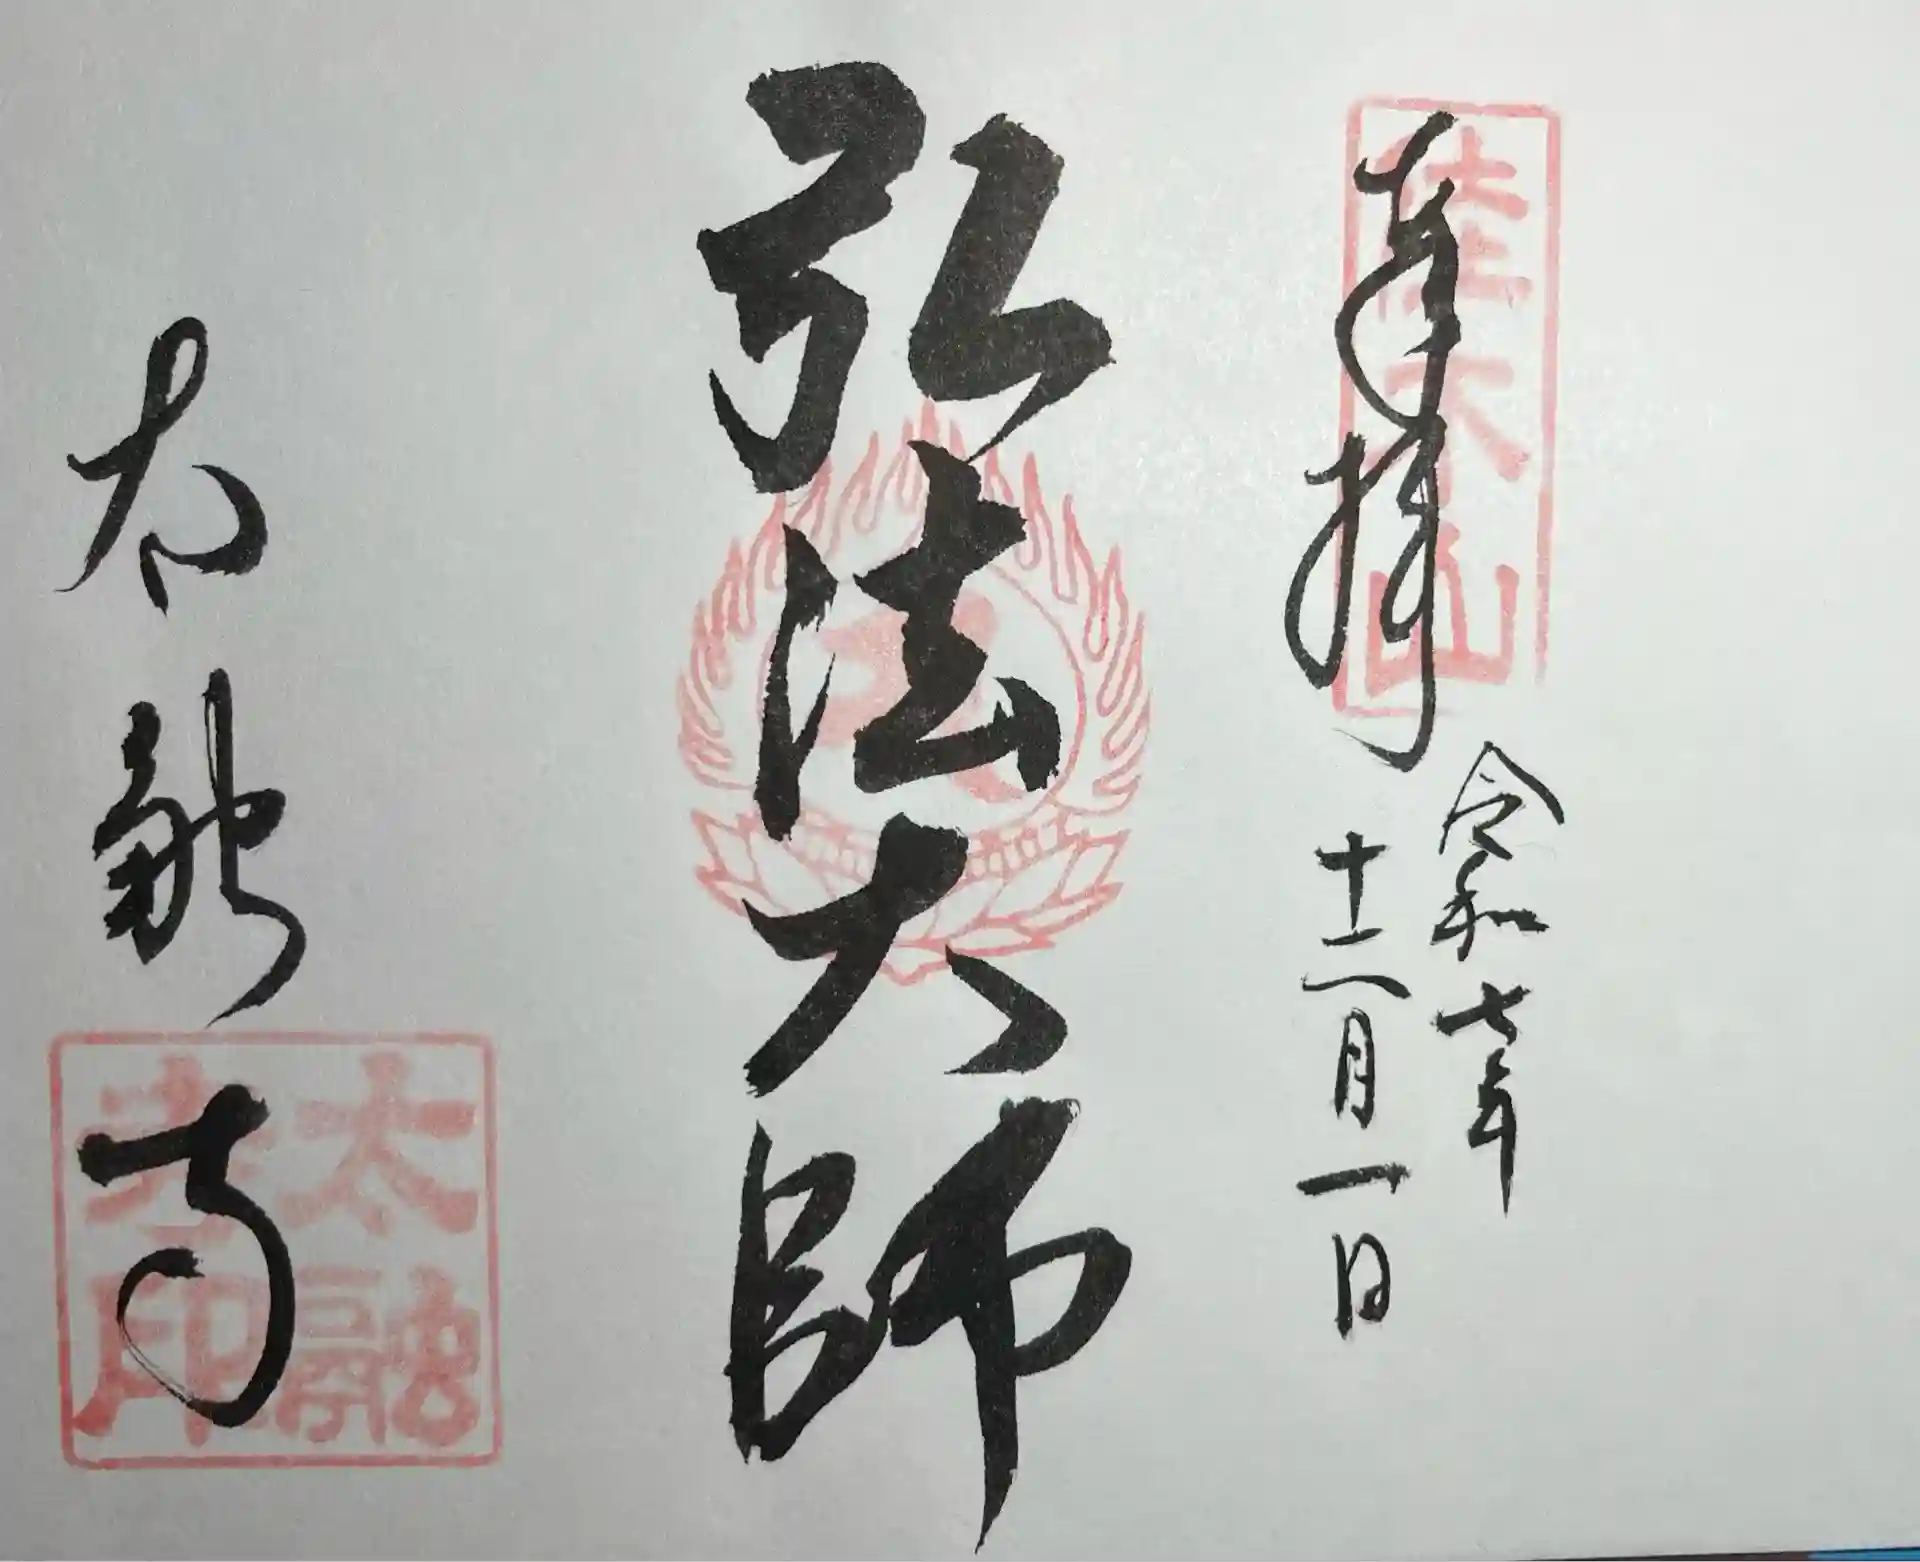 奉拝
佳木山
令和七年
十二月一日
弘法大師
太融寺
太融寺印